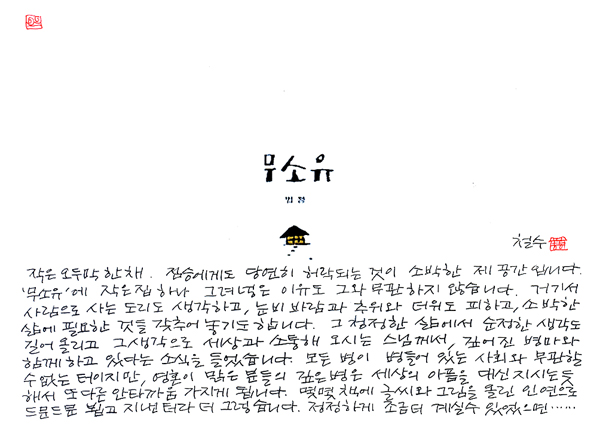 무소유
법정
철수
작은 오두막 한 채. 짐승에게도 당연히 허락되는 것이 소박한 제 공간입니다.
'무소유'에 작은 집 하나 그려넣은 이유도 그와 무관하지 않습니다. 거기서
사람으로 사는 도리도 생각하고, 눈비 바람과 추위와 더위도 피하고, 소박한
삶에 필요한 것들 갖추어 놓기도 합니다. 그 청정한 삶에서 순정한 생각도
길어 올리고 그 생각으로 세상과 소통해 오시는 스님께서, 깊어진 병마와
함께 하고 있다는 소식을 들었습니다. 모든 병이 병들어 있는 사회와 무관할
수 없는 터이지만, 영혼이 맑은 분들의 깊은 병은 세상의 아픔을 대신 지시는 듯
해서 또 다른 안타까움 가지게 됩니다. 몇몇 책에 글씨와 그림을 올린 인연으로
드문드문 뵙고 지낸 터라 더 그렇습니다. 정정하게 조금 더 계실 수 있었으면……